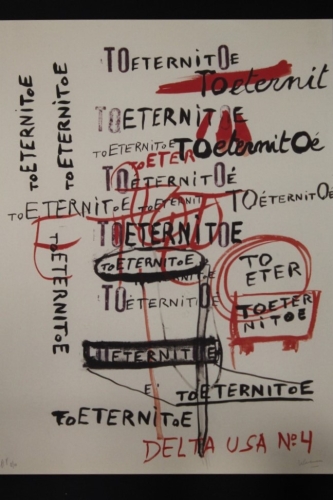 TOETERNITOE
TOeternit
TOETERNITOE
TOETERNITOE
TOeternitOé
TOETER
TOETERNITOE
TOETERNITOE
TOETERNITOÉ
TOETERNITOE
TOETERNITOE
TOÉTERNITOE
TOETERNITOE
TOETERNITOE
TOETERNITOE
TO
ETER
TOETERNITOE
TOETERNITOE
TOETER
NITOE
TOETERNITOE
TOETERNITOE
TOETERNITOE
DELTA USA Nº4